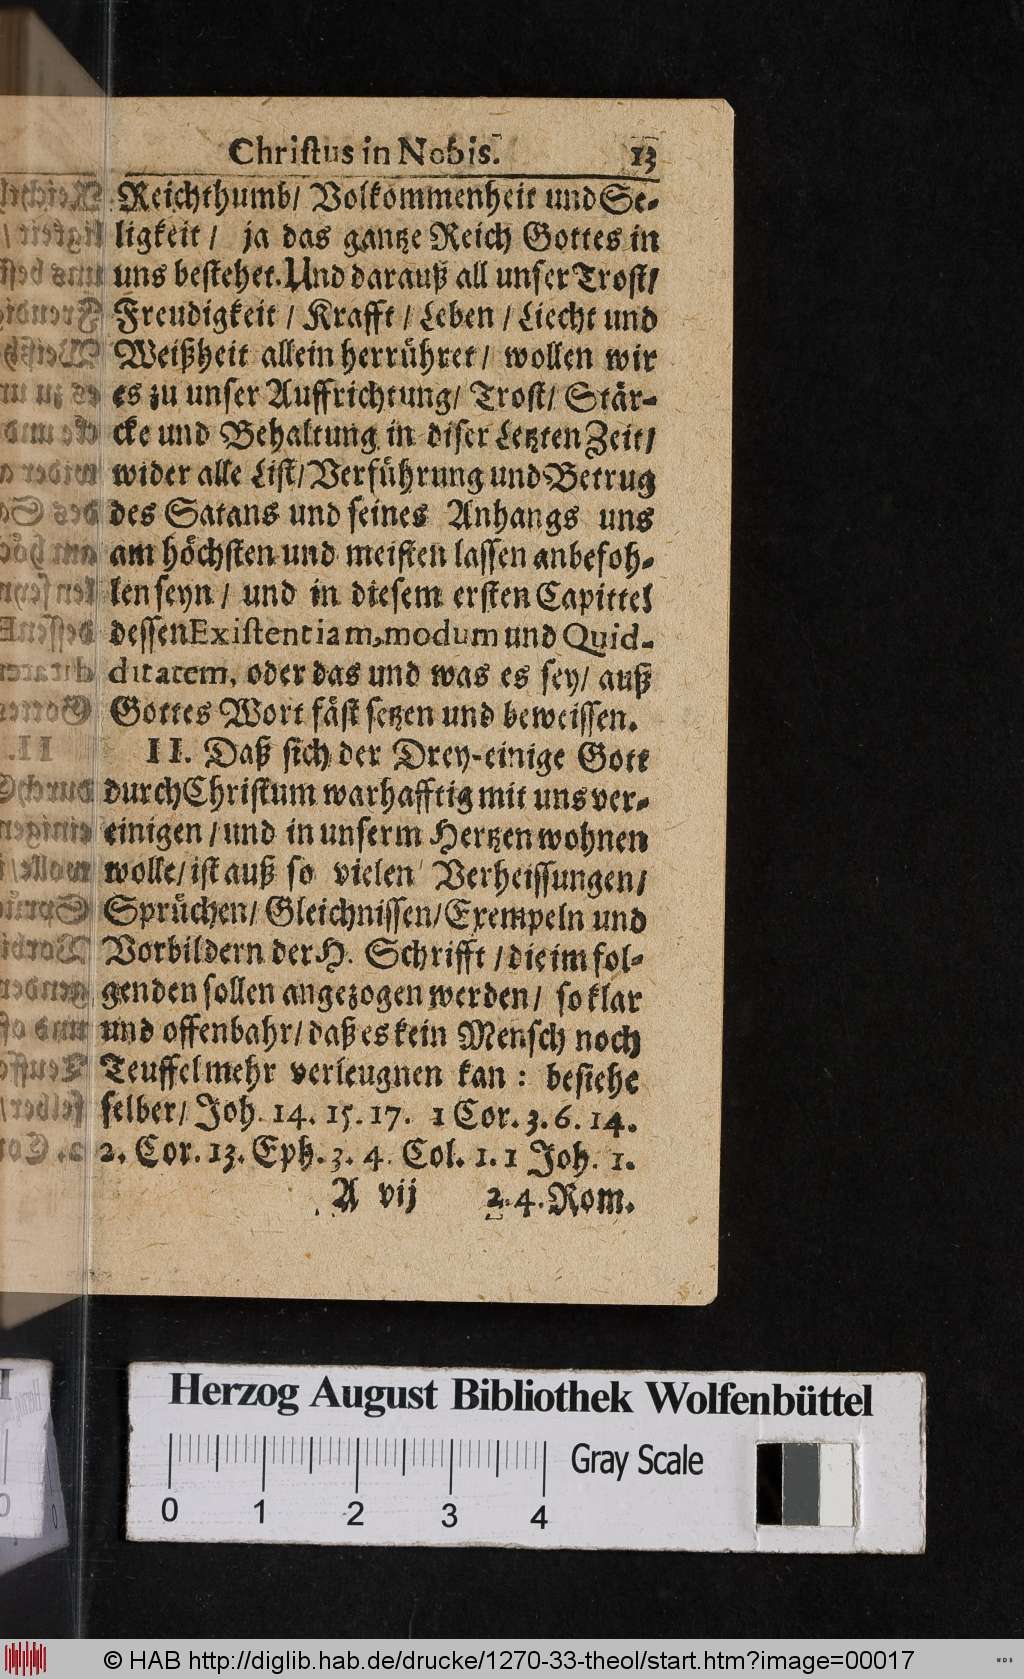 Christus in Nobis. 13
Reichthumb/ Volkommenheit und Se-
ligkeit/ ja das gantze Reich Gottes in
uns bestehet. Und darauß all unser Trost/
Freudigkeit/ Krafft/ Leben/ Liecht und
Weißheit allein herrühret/ wollen wir
es zu unser Auffrichtung/ Trost/ Stär-
cke und Behaltung in diser Letzten Zeit/
wider alle List/ Verführung und Betrug
des Satans und seines Anhangs uns
am höchsten und meisten lassen anbefoh-
len seyn/ und in diesem ersten Capittel
dessen Existentiam, modum und Quid-
ditatem, oder das und was es sey/ auß
Gottes Wort fäst setzen und beweissen.
II. Daß sich der Drey-einige Gott
durch Christum warhafftig mit uns ver-
einigen/ und in unserm Hertzen wohnen
wolle/ ist auß so vielen Verheissungen/
Sprüchen/ Gleichnissen/ Exempeln und
Vorbildern der H. Schrifft/ die im fol-
genden sollen angezogen werden/ so klar
und offenbahr/ daß es kein Mensch noch
Teuffel mehr verleugnen kan: besiehe
selber/ Joh. 14. 15. 17. 1 Cor. 3. 6. 14.
2. Cor. 13. Eph. 3. 4. Col. 1. 1 Joh. 1.
A vij 2. 4. Rom.
Herzog August Bibliothek Wolfenbüttel
Gray Scale
0 1 2 3 4
© HAB http://diglib.hab.de/drucke/1270-33-theol/start.htm?image=00017